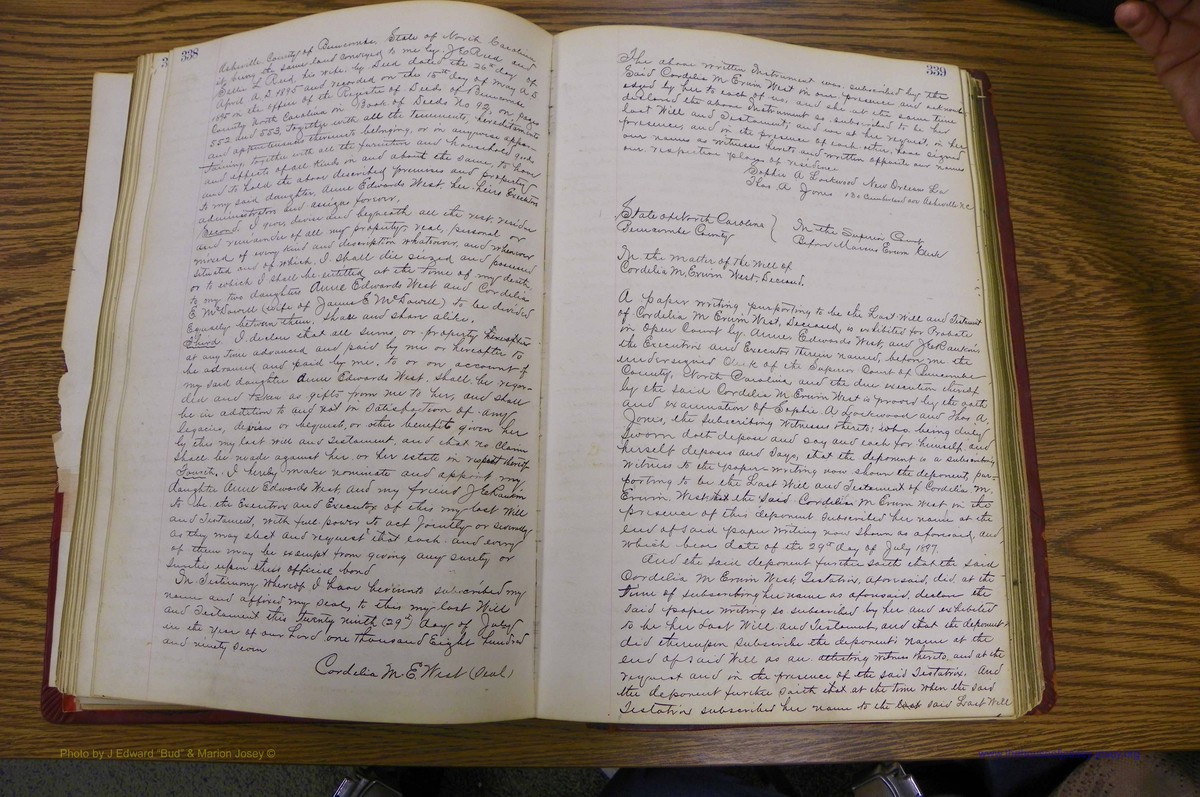 338
Asheville County of Buncombe, State of North Carolina
it being the same land conveyed to me by J E Reed and
Ella L Reed, his wife by Deed dated the 26th day of
April A.D. 1895 and recorded on the 15th day of May A.D.
1895 in the office of the Register of Deeds of Buncombe
County North Carolina in Book of Deeds No 92, on pages
552 and 553, together with all the tenements, hereditaments
and appurtenances thereunto belonging, or in anywise apper-
taining, together with all the furniture and household goods
and effects of all kinds in and about the same, to have
and to hold the above described premises and property
to my said daughter, Anne Edwards West, her heirs Executors
administrators and assigns forever.
Second. I give, devise and bequeath all the rest, residue
and remainder of all my property, real, personal or
mixed of every kind and description whatsoever, and wherever
situated and of which, I shall die seized and possessed
or to which I shall be entitled, at the time of my death
to my two daughters Anne Edwards West and Cordelia
E McDowell (wife of James E McDowell) to be divided
Equally between them, share and share alike.
Third. I declare that all sums or property heretofore
at any time advanced and paid by me or hereafter to
be advanced and paid by me, to or on account of
my said daughter Anne Edwards West, shall be regar-
ded and taken as gifts from me to her, and shall
be in addition to and not in Satisfaction of any
legacies, devises or bequests, or other benefits given her
by this my last will and Testament, and that no claim
shall be made against her or her estate in respect thereto
Fourth. I hereby make nominate and appoint my
daughter Anne Edwards West, and my friend J E Rankin
to be the Executrix and Executor of this my last Will
and Testament, with full power to act jointly or severally
as they may elect and request that each and every
of them may be exempt from giving any surety or
sureties upon their official bond
In Testimony Whereof I have hereunto subscribed my
name and affixed my Seal, to this my last Will
and Testament this twenty ninth (29th) day of July
in the year of our Lord one thousand Eight hundred
and ninety seven
Cordelia M. E West (Seal)
339
The above written Instrument was subscribed by the
said Cordelia M Erwin West in our presence and acknowl-
edged by her to each of us, and she at the same time
declared the above Instrument so subscribed to be her
last Will and Testament; and we at her request, in her
presence, and in the presence of each other, have signed
our names as witnesses hereto, and written opposite our names
our respective places of residence.
Sophie A Lockwood New Orleans La
Thos. A Jones Cumberland ave Asheville N C
State of North Carolina } In the Superior Court
Buncombe County Before Marcus Erwin Clerk
In the matter of the Will of
Cordelia M. Erwin West, Deceased.
A paper writing, purporting to be the Last Will and Testament
of Cordelia M Erwin West, Deceased, is exhibited for Probate
in Open Court by Anne Edwards West, and J E Rankin
the Executrix and Executor therein named, before me the
undersigned Clerk of the Superior Court of Buncombe
County, North Carolina and the due execution thereof
by the said Cordelia M Erwin West is proved by the oath
and examination of Sophie A Lockwood and Thos. A.
Jones, the subscribing Witnesses thereto; who being duly
sworn doth depose and say and each for himself and
herself deposes and says, that the deponent is a subscribing
witness to the paper-writing now shown the deponent, pur-
porting to be the Last Will and Testament of Cordelia M.
Erwin West, that the said Cordelia M Erwin West in the
presence of this deponent subscribed her name at the
end of said paper writing now shown as aforesaid, and
which bears date of the 29th day of July 1897.
And the said deponent further saith that the said
Cordelia M Erwin West, Testatrix, aforesaid, did, at the
time of subscribing her name as aforesaid, declare the
said paper writing so subscribed by her and exhibited
to be her Last Will and Testament, and that the deponent
did thereupon subscribe the deponent's name at the
end of said Will as an attesting witness thereto, and at the
request and in the presence of the said Testatrix. And
the deponent further saith that at the time when the said
Testatrix subscribed her name to the said Last Will
Photo by J Edward "Bud" & Marion Josey ©